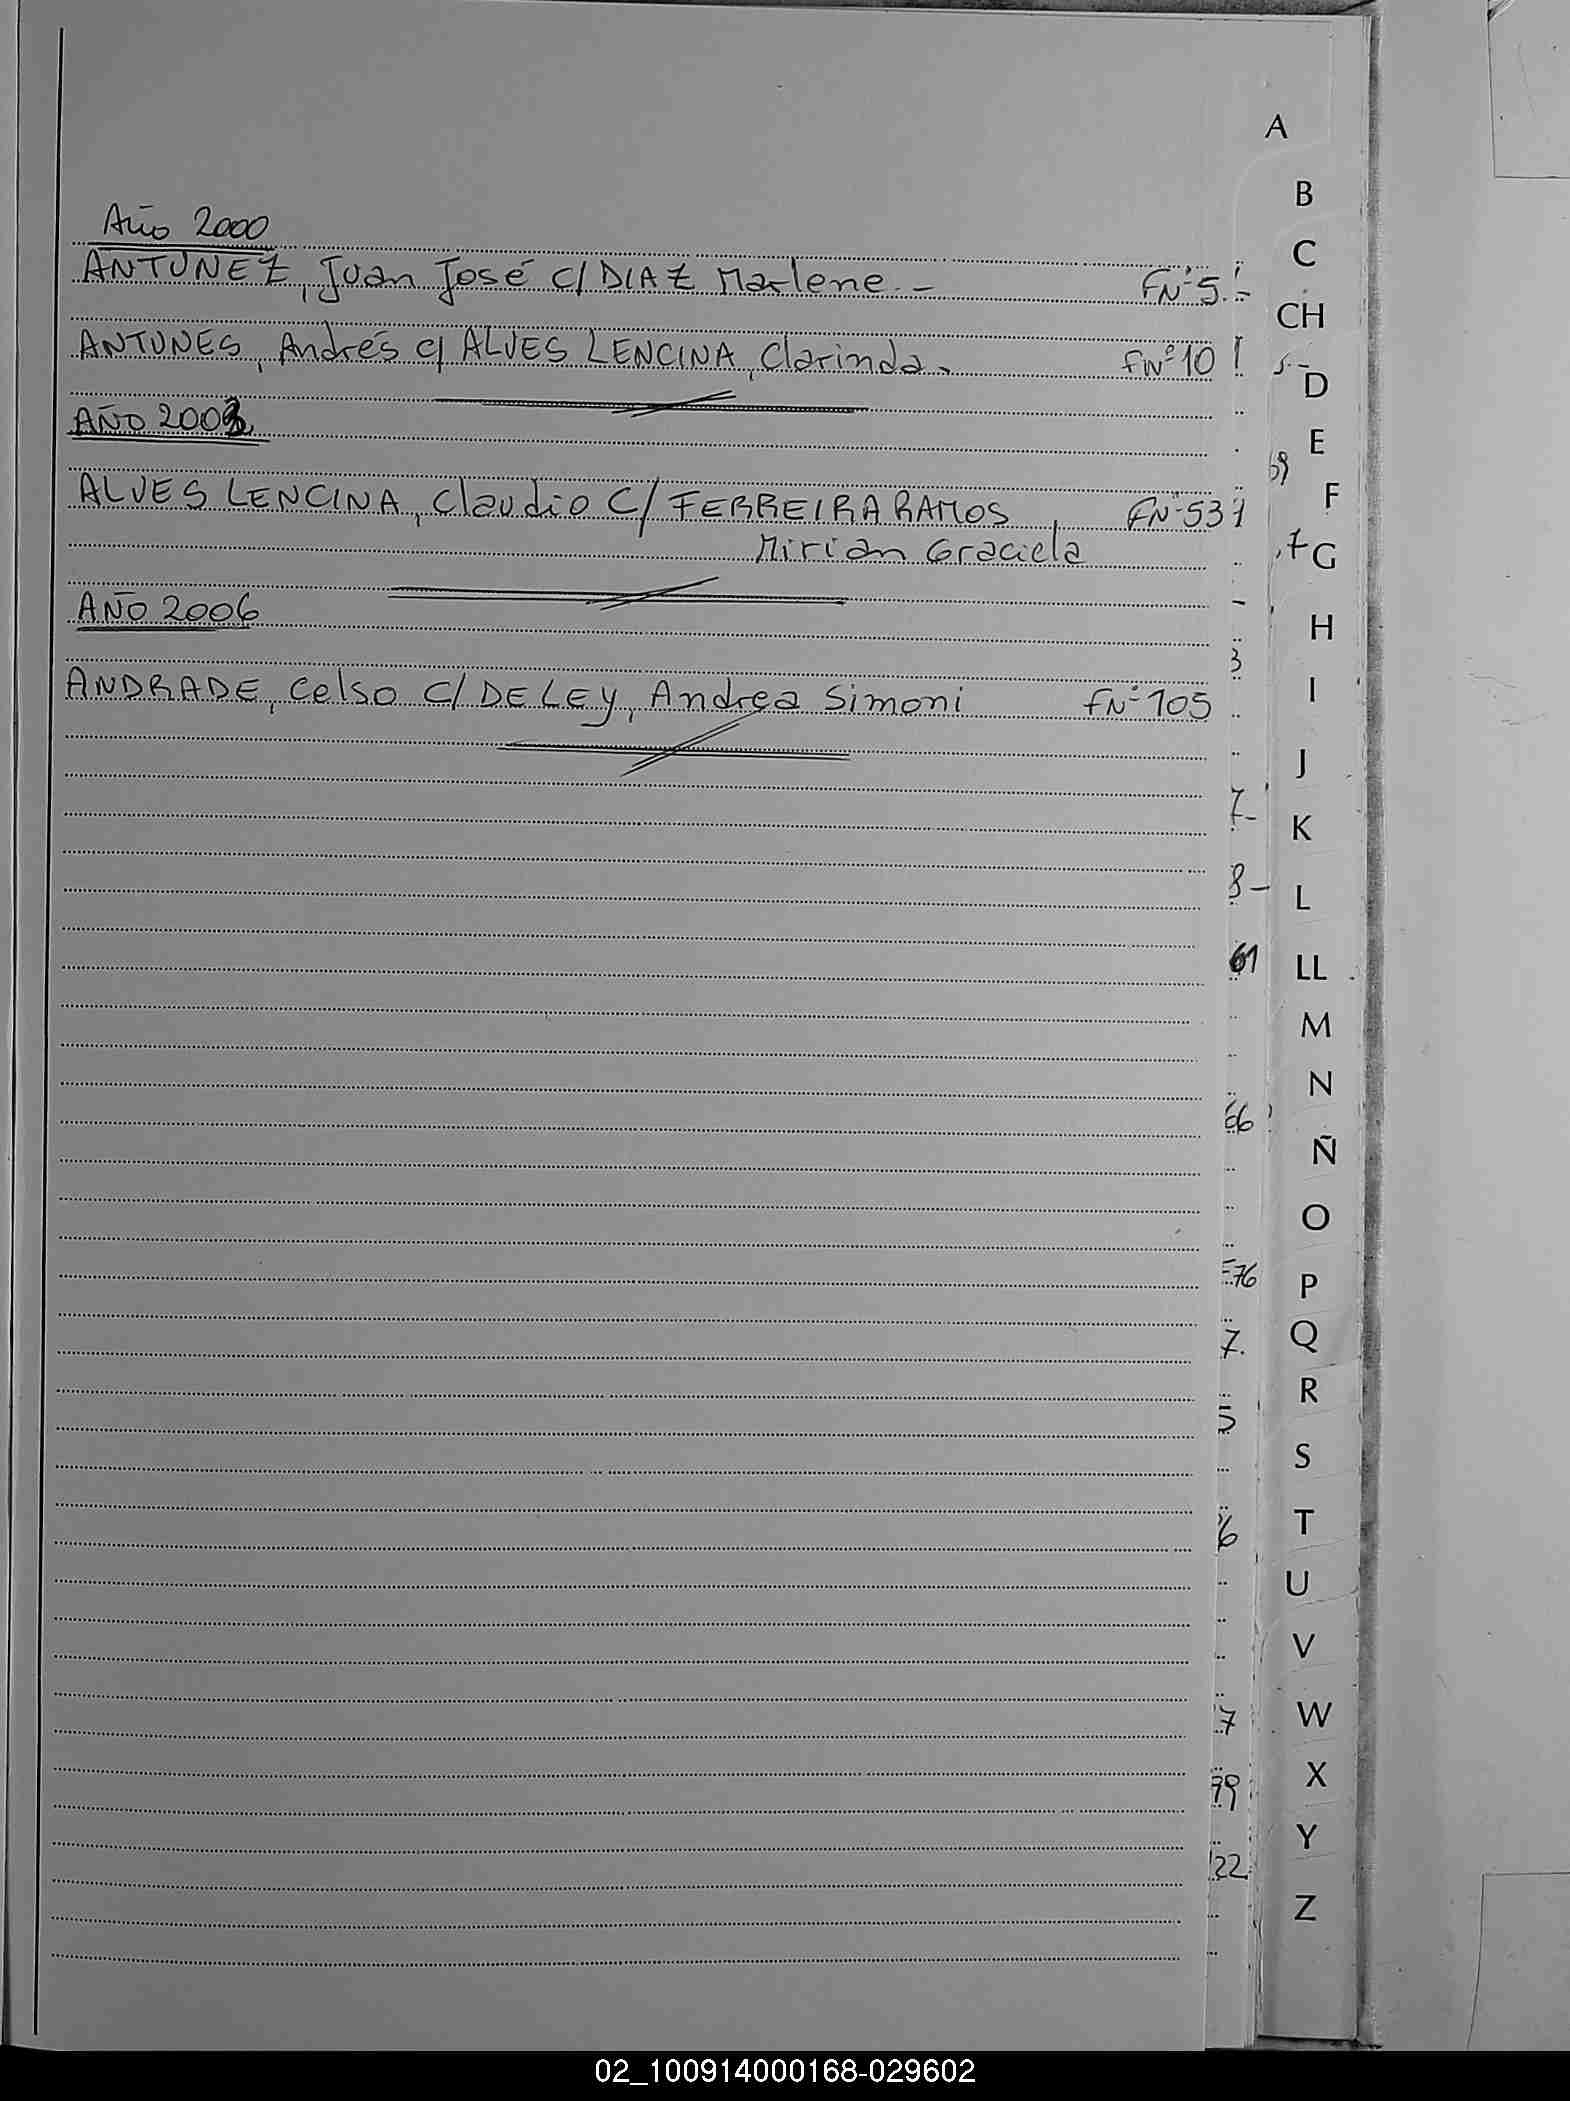 Año 2000
ANTUNEZ, Juan José C/DIAZ Marlene.- FNº5.-
ANTUNES, Andrés c/ ALVES LENCINA, Clarinda. FNº10
AÑO 2003
ALVES LENCINA, Claudio C/ FERREIRA RAMOS, FNº53
Mirian Graciela
AÑO 2006
ANDRADE, Celso C/DELEY, Andrea Simoni FNº105
A
B
C
CH
D
E
F
G
H
I
J
K
L
LL
M
N
Ñ
O
P
Q
R
S
T
U
V
W
X
Y
Z
02_100914000168-029602